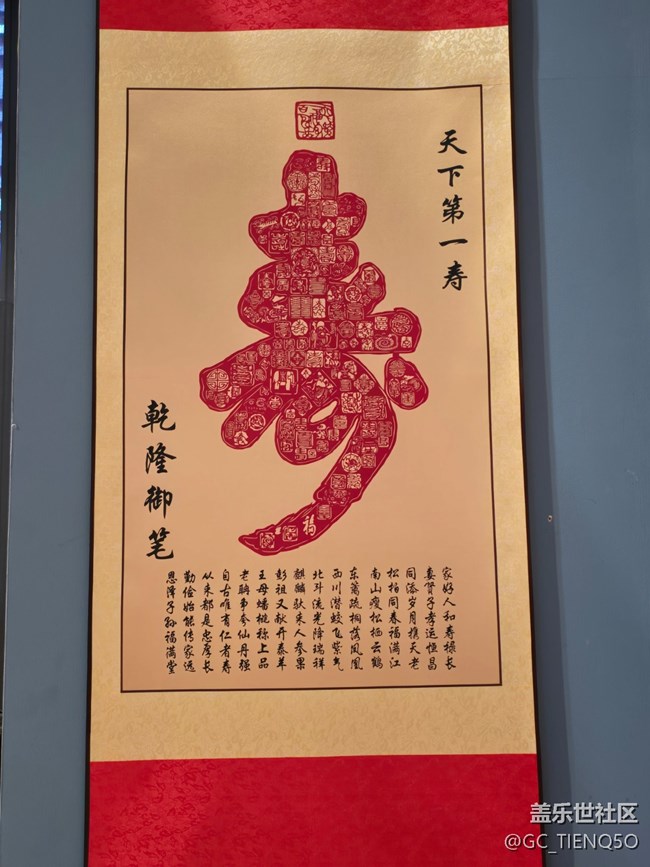 天下第一寿
寿
福
乾隆御笔
家好人和寿禄长
妻贤子孝运恒昌
同添岁月携天老
松柏同春福满江
南山瘦松栖云鹤
东篱疏桐荫凤凰
西川潜蛟飞紫气
北斗流光降瑞祥
麒麟驮来人参果
彭祖又献开泰羊
王母蟠桃称上品
老聃夸仙丹强
自古唯有仁者寿
从来都是忠厚长
勤俭始能传家远
恩泽子孙福满堂
盖乐世社区
@GC_TIENQ5O